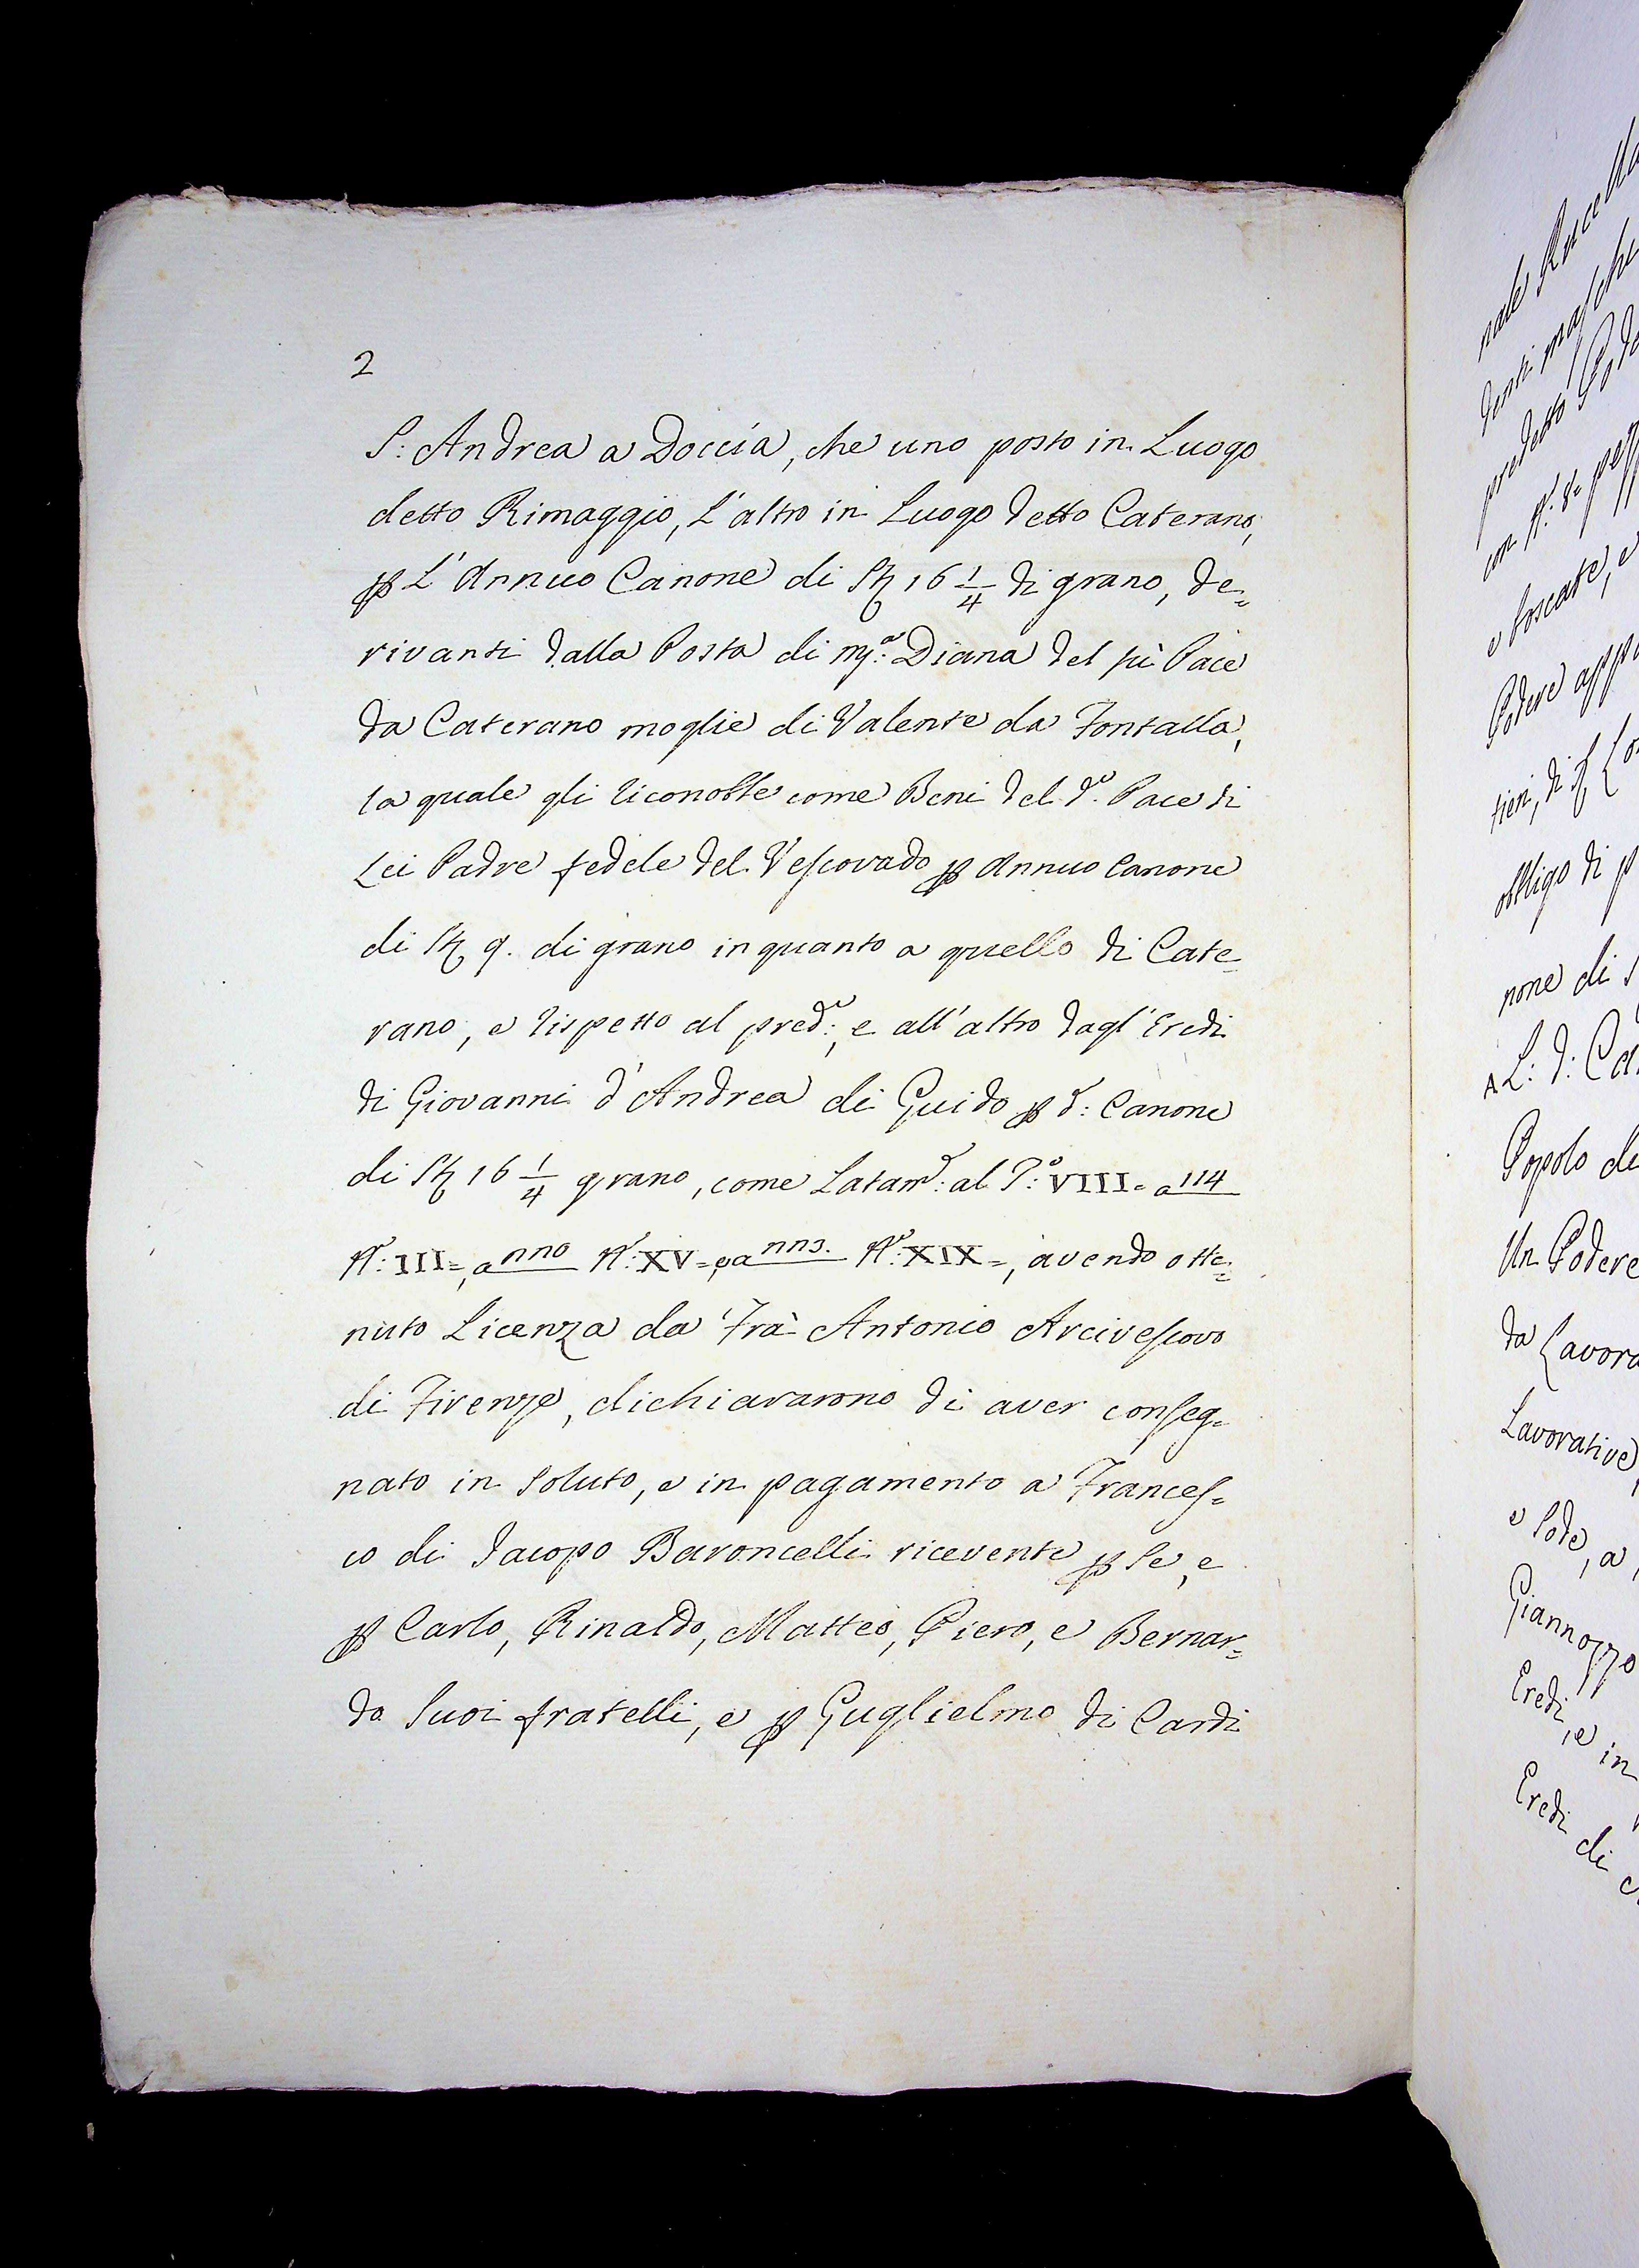 2
S: Andrea a Doccia, che uno posto in Luogo
detto Rimaggio, L'altro in Luogo detto Caterano,
p L'Annuo Canone di St 16 1/4 di grano, de=
rivanti dalla Posta di mª: Diana del fù Pace
da Caterano moglie di Valente da Fontalla,
la quale gli riconobbe come Beni del dº. Pace di
Lei Padre fedele del Vescovado p Annuo Canone
di St 9. di grano in quanto a quello di Cate=
rano, e rispetto al predº:, e all'altro dagl'Eredi
di Giovanni d'Andrea di Guido p d: Canone
di St 16 1/4 grano, come al Pº: VIII= a 114
Nº: III=, a nno Nº: XV=, e a nns. Nº: XIX=, avendo otte=
nuto Licenza da Frà Antonio Arcivescovo
di Firenze, dichiararono di aver conseg=
nato in soluto, e in pagamento a Frances=
co di Jacopo Baroncelli ricevente p se, e
p Carlo, Rinaldo, Matteo, Piero, e Bernar=
do suoi fratelli, e p Guglielmo di Cardi
nale Rucella
denti maschi
predetto Pode
con
e boscate, e
Podere appo
tieri, di
obbligo di p
none di
A L: d: Ca
Popolo di
Un Podere
da Lavora
Lavorative,
e sode, a
Giannozzo
Eredi, e in
Eredi di